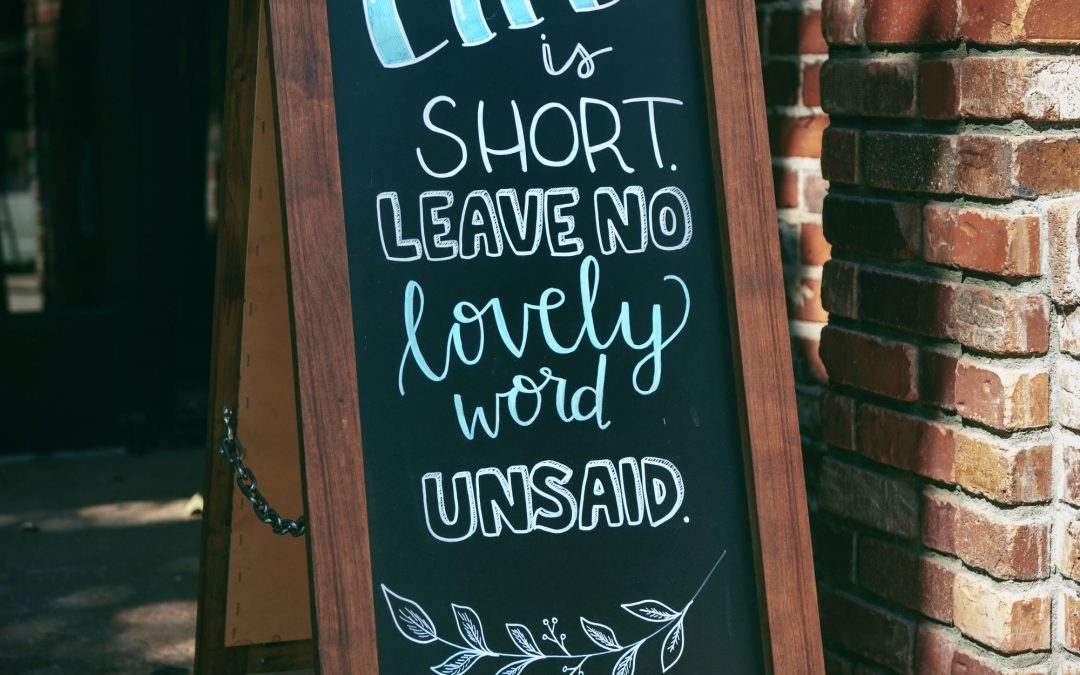 is
SHORT.
LEAVE NO
lovely
word
UNSAID.